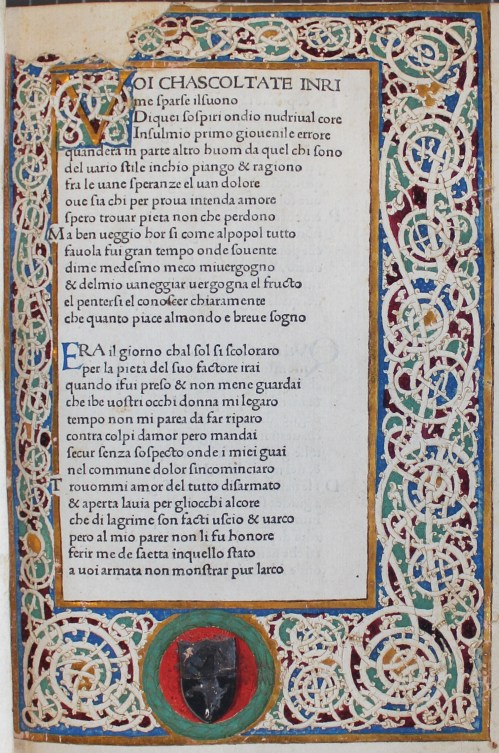 VOI CHASCOLTATE INRI
me sparse ilsuono
Di quei sospiri ondio nudriual core
Insulmio primo giouenile errore
quandera in parte altro huom da quel chi sono
del uario stile inchio piango & ragiono
fra le uane speranze el uan dolore
oue sia chi per proua intenda amore
spero trouar pieta non che perdono
Ma ben ueggio hor si come alpopol tutto
fauola fui gran tempo onde souente
dime medesmo meco miuergogno
& delmio uaneggiar uergogna el fructo
el pentersi el conoscer chiaramente
che quanto piace almondo e breue sogno
ERA il giorno chal sol si scoloraro
per la pieta del suo factore irai
quando ifui preso & non mene guardai
che ibe uostri occhi donna mi legaro
tempo non mi parea da far riparo
contra colpi damor pero mandai
secur senza sospecto onde i miei guai
nel commune dolor sincominciaro
Trouommi amor del tutto disarmato
& aperta lauia per gliocchi alcore
che di lagrime son facti uscio & uarco
pero al mio parer non li fu honore
ferir me de saetta inquello stato
a uoi armata non monstrar pur larco